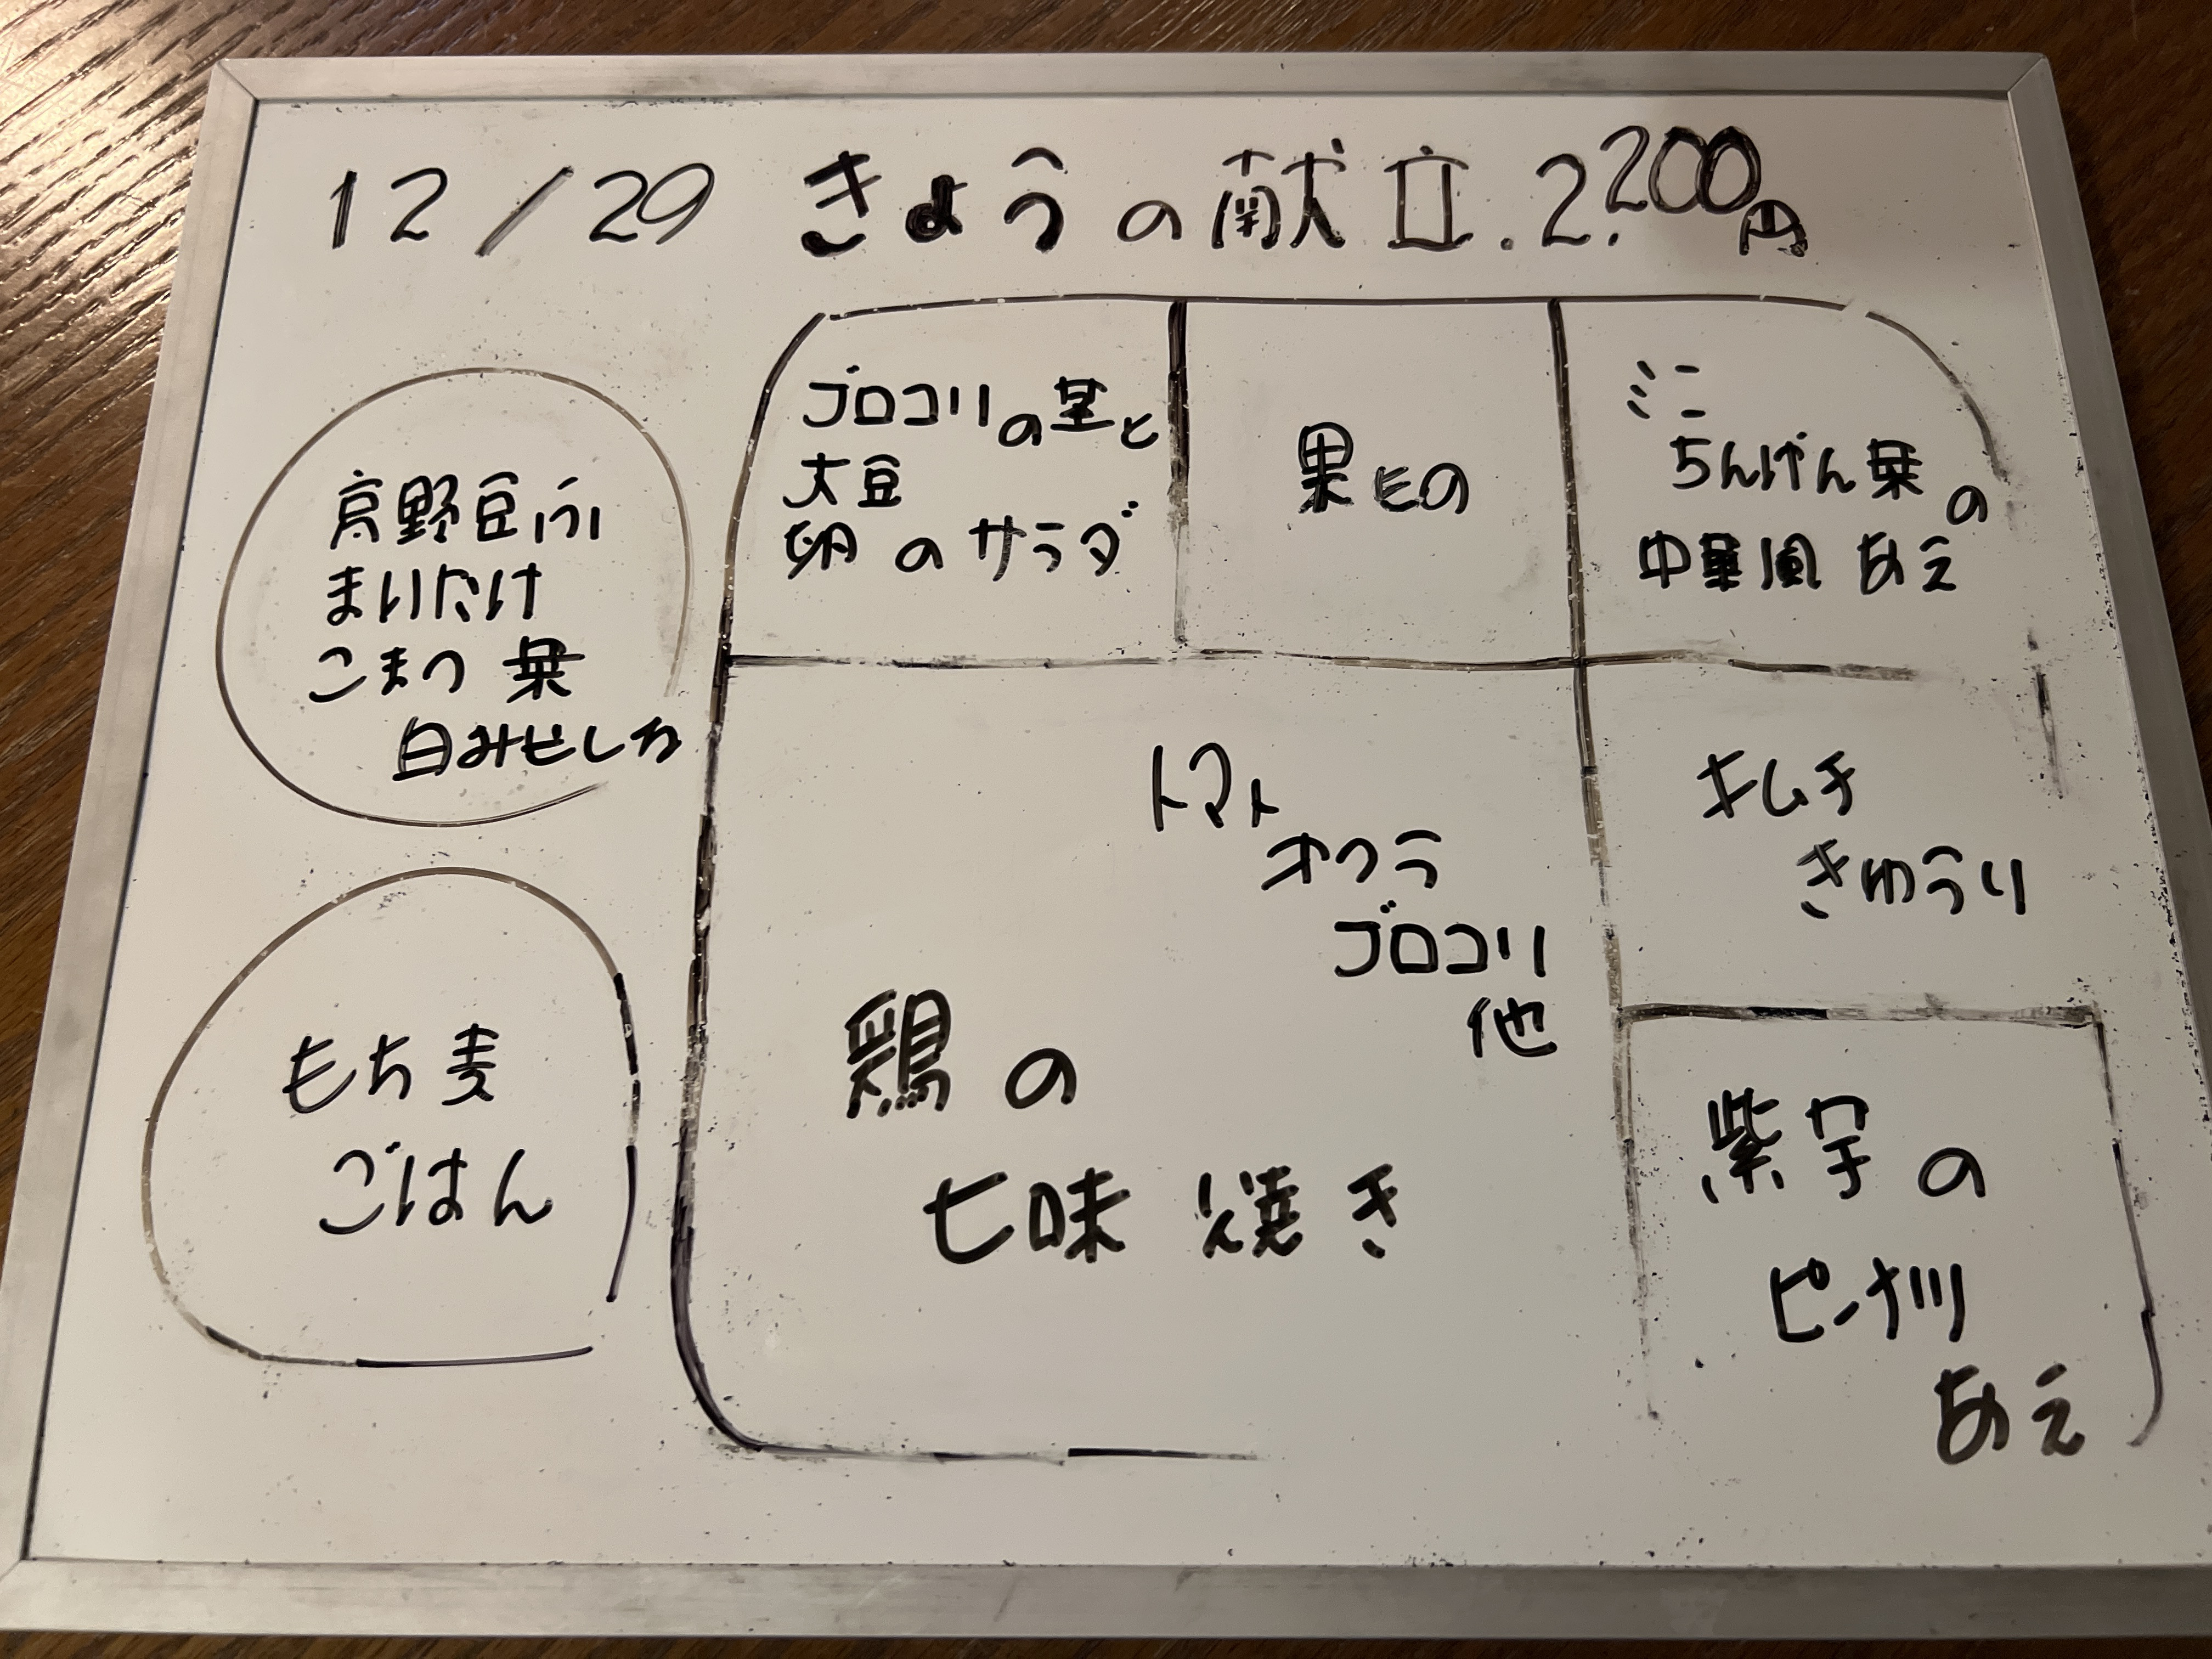 12/29 きょうの献立.2.200円
ブロコリの茎と
大豆
卵のサラダ
果もの
ミニ
ちんげん菜の
中華風あえ
高野豆ふ
まいたけ
こまつ菜
白みそしる
トマト
オクラ
ブロコリ
他
鶏の
七味焼き
キムチ
きゅうり
もち麦
ごはん
紫芋の
ピーナツ
あえ